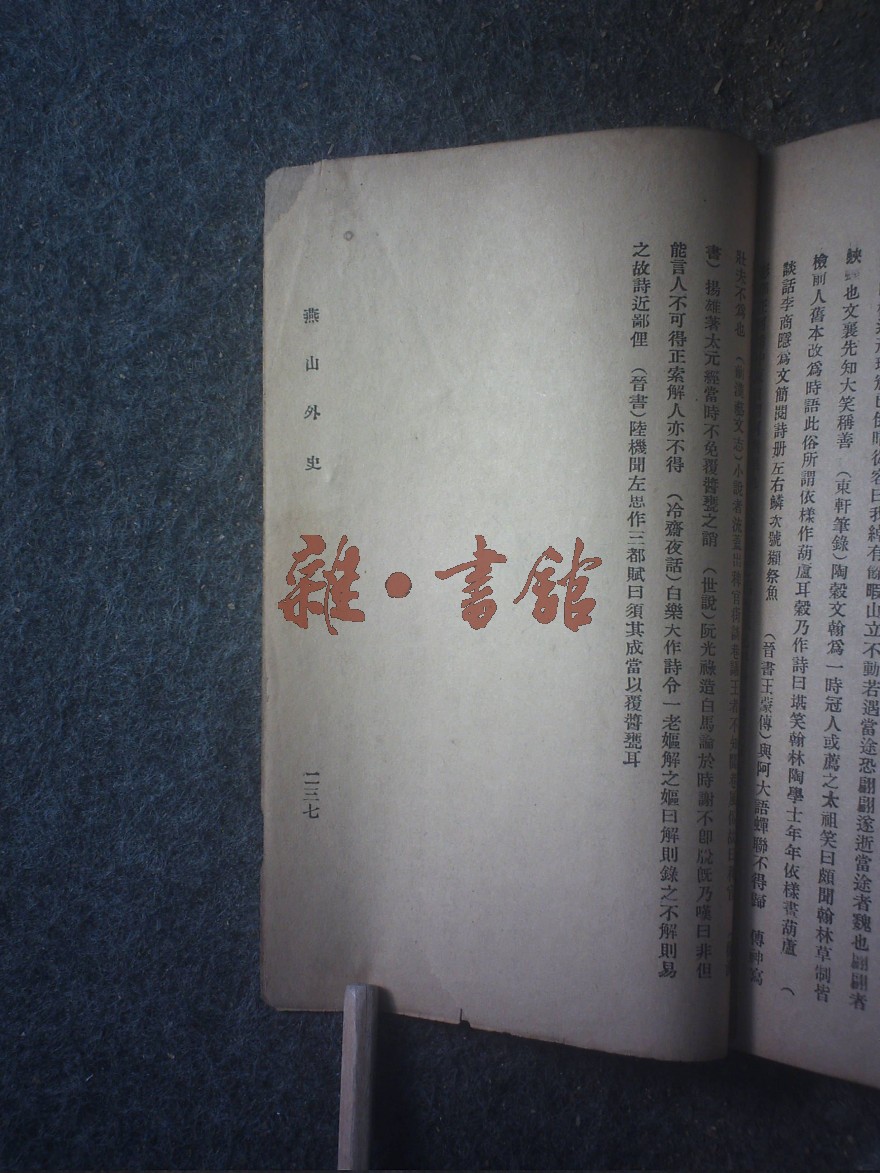 也文襄先知大笑稱善　（東軒筆錄）陶穀文翰爲一時冠人或薦之太祖笑曰頗聞翰林草制皆
檢前人舊本改爲時語此俗所謂依樣作葫蘆耳穀乃作詩曰堪笑翰林陶學士年年依樣畫葫蘆　（
談話李商隱爲文簡閱詩册左右鱗次號獺祭魚　（晉書王濛傳）與阿大語蟬聯不得歸　傳神寫
壯夫不爲也　（前漢藝文志）小說者流蓋出稗官街談巷
書）揚雄著太元經當時不免覆醬甕之誚　（世說）阮光祿造白馬論於時謝不卽
乃嘆曰非但
能言人不可得正索解人亦不得　（冷齋夜話）白樂天作詩令一老嫗解之嫗曰解則錄之不解則易
之故詩近鄙俚　（晉書）陸機聞左思作三都賦曰須其成當以覆醬甕耳
燕山外史
一三七
雜・書館